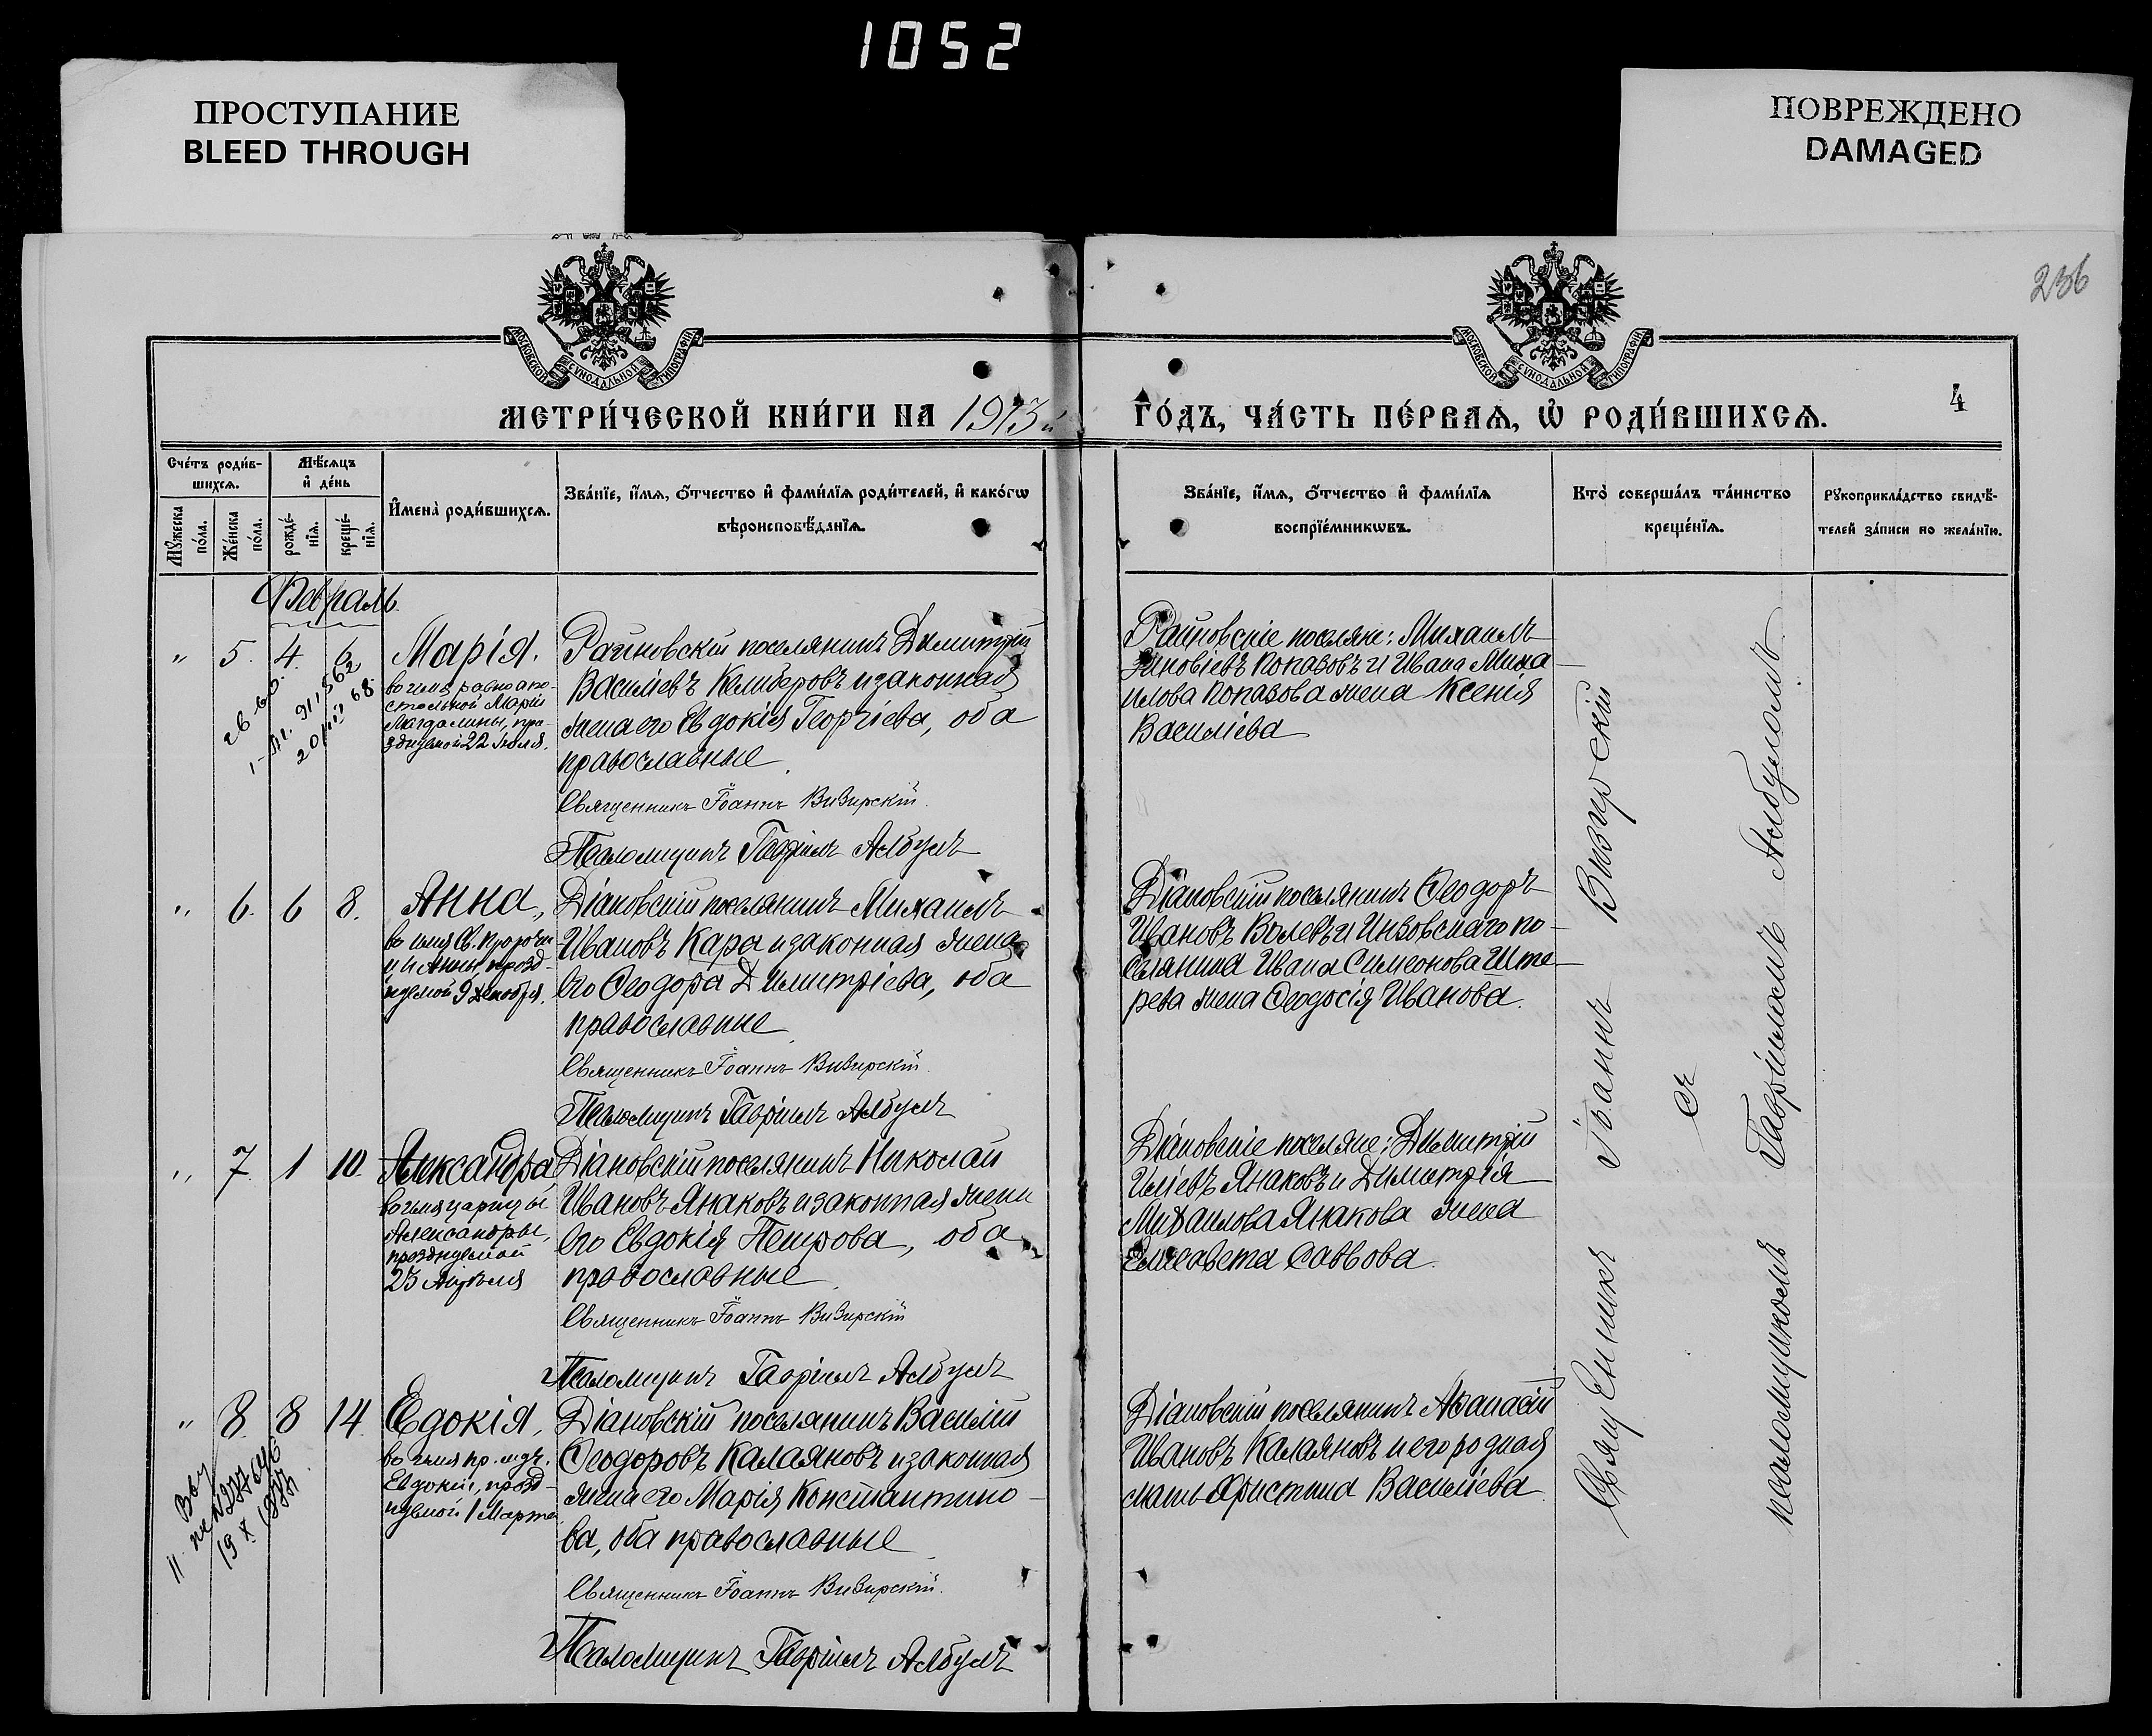 1052
ПРОСТУПАНИЕ
BLEED THROUGH
ПОВРЕЖДЕНО
DAMAGED
236
МОСКОВСКОЙ СѴНОДАЛЬНОЙ ТИПОГРАФІИ
МОСКОВСКОЙ СѴНОДАЛЬНОЙ ТИПОГРАФІИ
МЕТРИ́ЧЕСКОЙ КНИ́ГИ НА 1913
ГО́ДЪ, ЧА́СТЬ ПЕ́РВАѦ, Ѡ҆ РОДИ́ВШИХСѦ.
4
Сче́тъ роди́в-
шихсѧ.
Мѣ́сѧцъ
и҆ де́нь
Мꙋ́жеска
по́ла.
Же́нска
по́ла.
рожде́-
нїѧ.
креще́-
нїѧ.
И҆мена̀ роди́вшихсѧ.
Зва́нїе, и҆́мѧ, ѻ҆́тчество и҆ фами́лїѧ роди́телей, и҆ како́гѡ
вѣроисповѣ́данїѧ.
Зва́нїе, и҆́мѧ, ѻ҆́тчество и҆ фами́лїѧ
воспрїе́мникѡвъ.
Кто̀ соверша́лъ та́инство
креще́нїѧ.
Рꙋкоприкла́дство свидѣ́-
телей за́писи по жела́нїю.
Февраль
" 5. 4. 6
Марія,
во имя равноапо-
стольной Маріи
Магдалины, пра-
зднуемой 22 Іюля.
Раиновскій поселянинъ Димитрій
Васильевъ Келиберовъ и законная
жена его Евдокія Георгіева, оба
православные
Священникъ Іоаннъ Визирскій.
Псаломщикъ Гавріилъ Албулъ
Раиновскіе поселяне: Михаилъ
Зиновіевъ Попазовъ и Ивана Миха-
илова Попазова жена Ксенія
Василіева
" 6. 6 8.
Анна,
во имя Св. Пророчи-
цы Анны, празд-
нуемой 9 Декабря.
Діановскій поселянинъ Михаилъ
Ивановъ Кара и законная жена
его Ѳеодора Димитріева, оба
православные
Священникъ Іоаннъ Визирскій.
Псаломщикъ Гавріилъ Албулъ
Діановскій поселянинъ Ѳеодоръ
Ивановъ Волевъ и Инзовскаго по-
селянина Ивана Симеонова Ште-
рева жена Ѳеодосія Иванова.
" 7. 1 10.
Александра
во имя царицы
Александры,
празднуемой
23 Апрѣля
Діановскій поселянинъ Николай
Ивановъ Янаковъ и законная жена
его Евдокія Петрова, оба
православные
Священникъ Іоаннъ Визирскій
Псаломщикъ Гавріилъ Албулъ
Діановскіе поселяне: Димитрій
Иліевъ Янаковъ и Димитрія
Михаилова Янакова жена
Елисавета Саввова.
" 8. 8 14.
Евдокія,
во имя пр. мцъ.
Евдокіи, празд-
нуемой 1 Марта
19 X
Діановскій поселянинъ Василій
Ѳеодоровъ Калаяновъ и законная
жена его Марія Константино-
ва, оба православные
Священникъ Іоаннъ Визирскій.
Псаломщикъ Гавріилъ Албулъ
Діановскій поселянинъ Аѳанасій
Ивановъ Калаяновъ и его родная
мать Христина Василіева
Священникъ Іоаннъ Визирскій
съ
псаломщикомъ Гавріиломъ Албуломъ